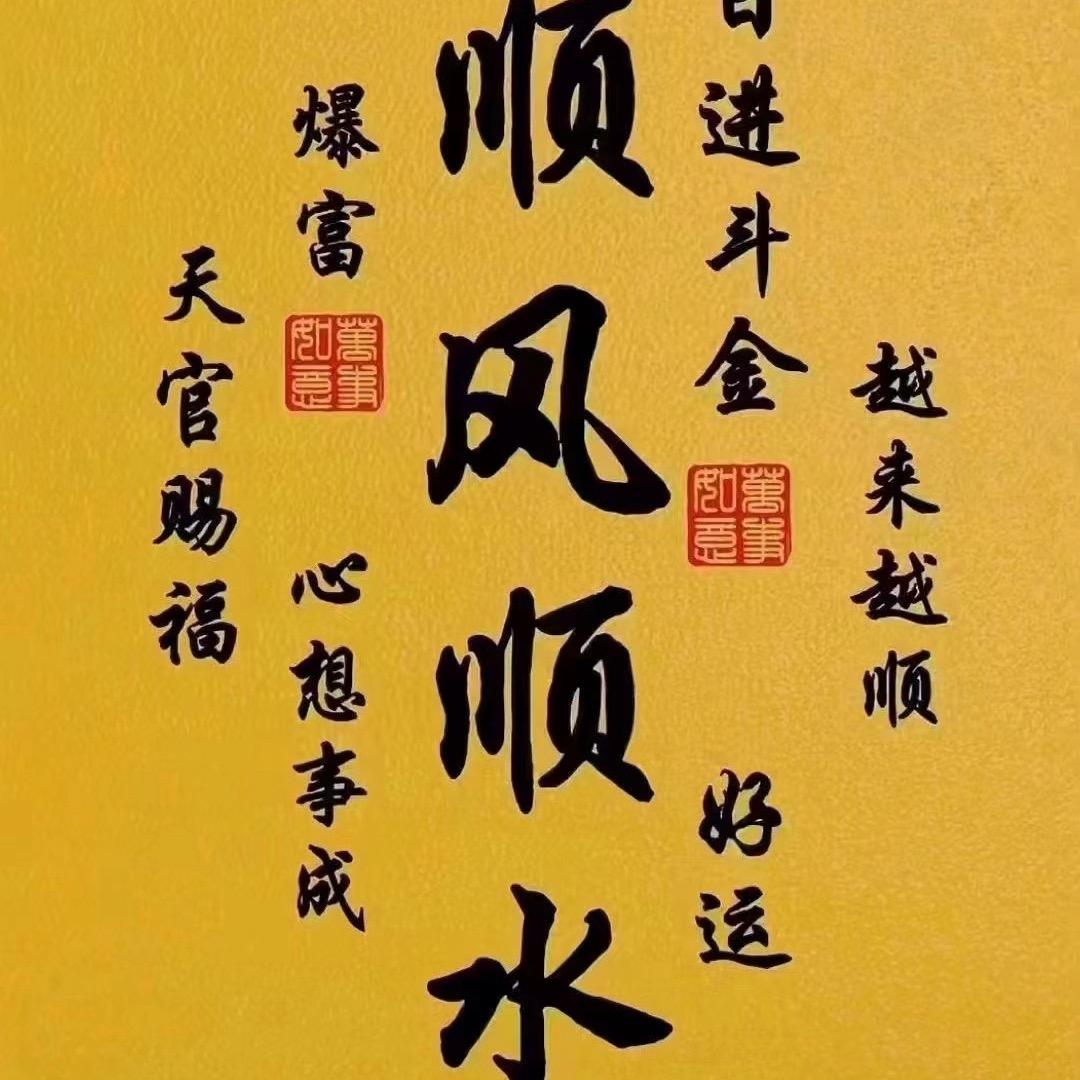 越来越顺
日进斗金
萬事如意
好运
顺风顺水
爆富
萬事如意
心想事成
天官赐福